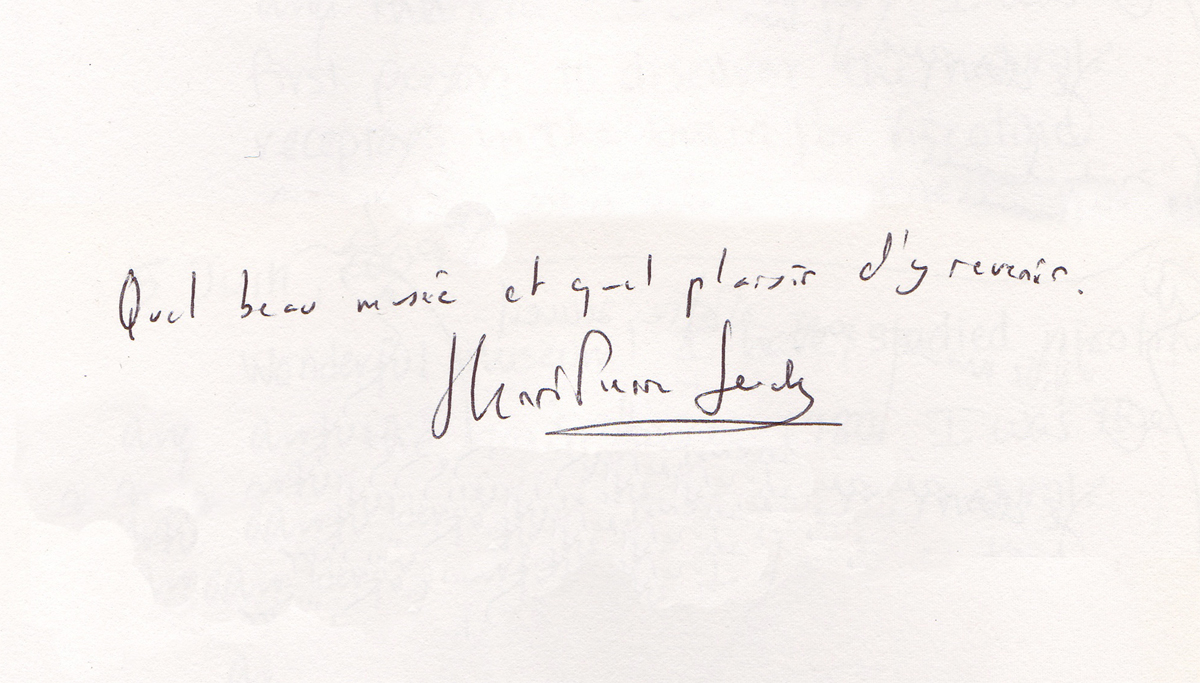 Quel beau musée et quel plaisir d'y revenir.
Henri Pierre